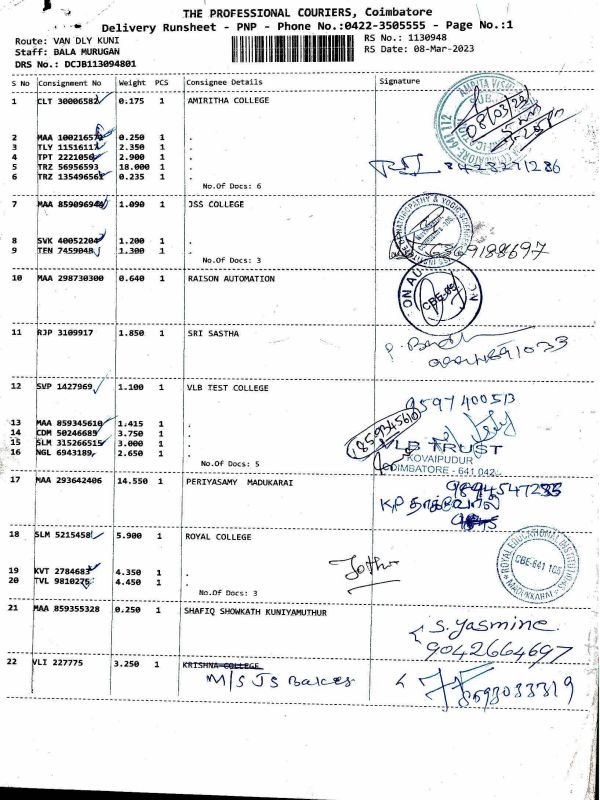 THE PROFESSIONAL COURIERS, Coimbatore
Delivery Runsheet - PNP - Phone No.:0422-3505555 - Page No.:1
Route: VAN DLY KUNI RS No.: 1130948
Staff: BALA MURUGAN RS Date: 08-Mar-2023
DRS No.: DCJB113094801
S No Consignment No Weight PCS Consignee Details Signature
1 CLT 30006582 0.175 1 AMIRITHA COLLEGE
08/03/23
2 MAA 10021657 0.250 1 .
3 TLY 1151611 2.350 1 .
4 TPT 2221056 2.900 1 .
5 TRZ 56956593 18.000 1 .
6 TRZ 13549656 0.235 1 .
No.Of Docs: 6
7 MAA 85909694 1.090 1 JSS COLLEGE
8 SVK 40052204 1.200 1 .
9 TEN 7459048 1.300 1 .
6369188697
No.Of Docs: 3
10 MAA 298730300 0.640 1 RAISON AUTOMATION
11 RJP 3109917 1.850 1 SRI SASTHA
12 SVP 1427969 1.100 1 VLB TEST COLLEGE
9597400513
13 MAA 859345610 1.415 1 .
14 CDM 50246685 3.750 1 .
15 SLM 315266515 3.000 1 .
16 NGL 6943189 2.650 1 .
No.Of Docs: 5
859345610
VLB TRUST
KOVAIPUDUR
COIMBATORE - 641 042
17 MAA 293642406 14.550 1 PERIYASAMY MADUKARAI
K.P
18 SLM 5215458 5.900 1 ROYAL COLLEGE
ROYAL EDUCATIONAL INSTITUTIONS
CBE-641 105
MADUKKARAI
19 KVT 2784683 4.350 1 .
20 TVL 9810275 4.450 1 .
Jothi
No.Of Docs: 3
21 MAA 859355328 0.250 1 SHAFIQ SHOWKATH KUNIYAMUTHUR
S. Yasmine
9042664697
22 VLI 227775 3.250 1 KRISHNA COLLEGE
M/S JS Bakes
8593033319